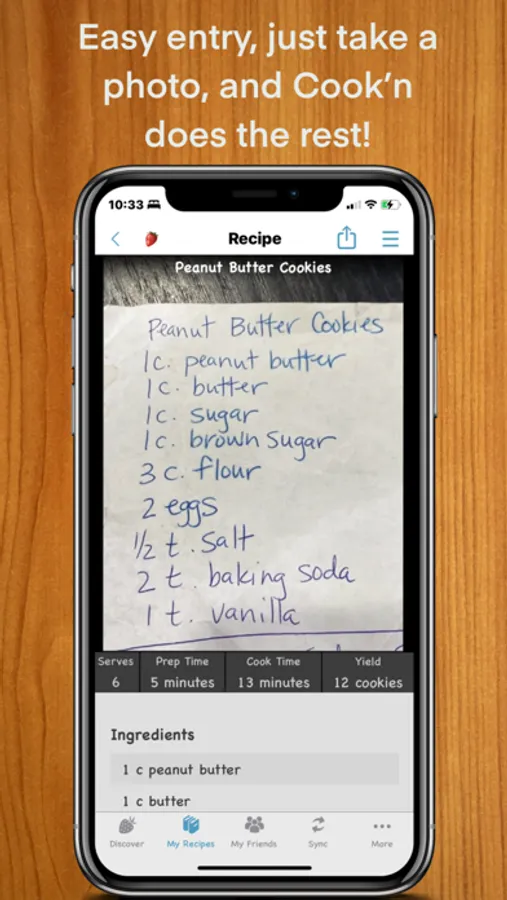 Easy entry, just take a
photo, and Cook’n
does the rest!
10:33
Recipe
Peanut Butter Cookies
Peanut Butter Cookies
1c. peanut butter
1c. butter
1c. sugar
1c. brown sugar
3 c. flour
2 eggs
1/2 t. salt
2 t. baking soda
1 t. vanilla
Serves Prep Time Cook Time Yield
6 5 minutes 13 minutes 12 cookies
Ingredients
1 c peanut butter
1 c butter
Discover My Recipes My Friends Sync More